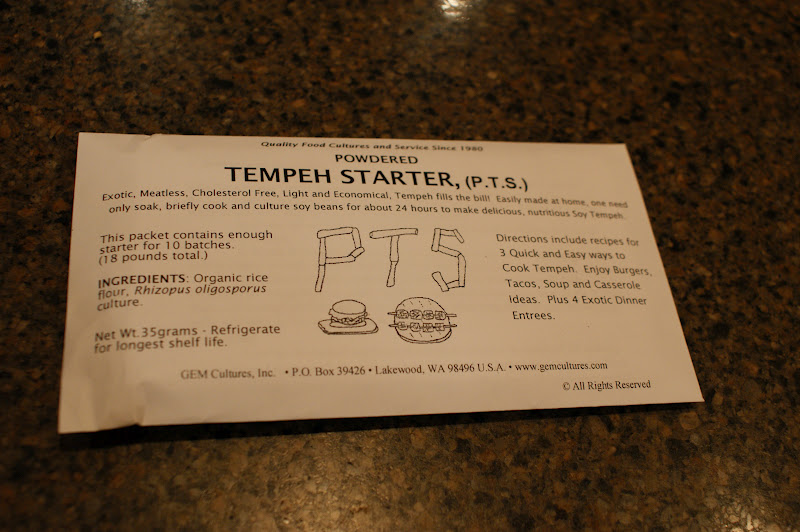 Quality Food Cultures and Service Since 1980
POWDERED
TEMPEH STARTER, (P.T.S.)
Exotic, Meatless, Cholesterol Free, Light and Economical, Tempeh fills the bill! Easily made at home, one need
only soak, briefly cook and culture soy beans for about 24 hours to make delicious, nutritious Soy Tempeh.
This packet contains enough
starter for 10 batches.
(18 pounds total.)
INGREDIENTS: Organic rice
flour, Rhizopus oligosporus
culture.
Net Wt. 35grams - Refrigerate
for longest shelf life.
PTS
Directions include recipes for
3 Quick and Easy ways to
Cook Tempeh. Enjoy Burgers,
Tacos, Soup and Casserole
Ideas. Plus 4 Exotic Dinner
Entrees.
GEM Cultures, Inc. • P.O. Box 39426 • Lakewood, WA 98496 U.S.A. • www.gemcultures.com
© All Rights Reserved